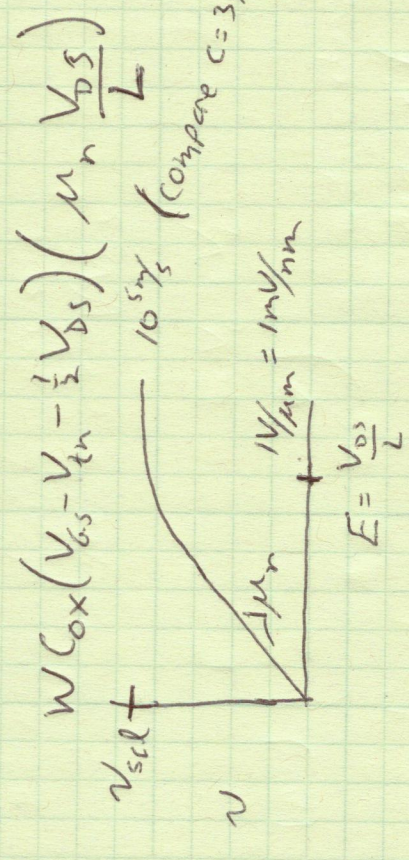 W C_OX (V_GS - V_tn - ½ V_DS) (μ_n V_DS/L)
v_scl 10⁵ m/s (compare c = 3,
v μ_n 1V/μm = 1mV/nm
E = V_DS/L